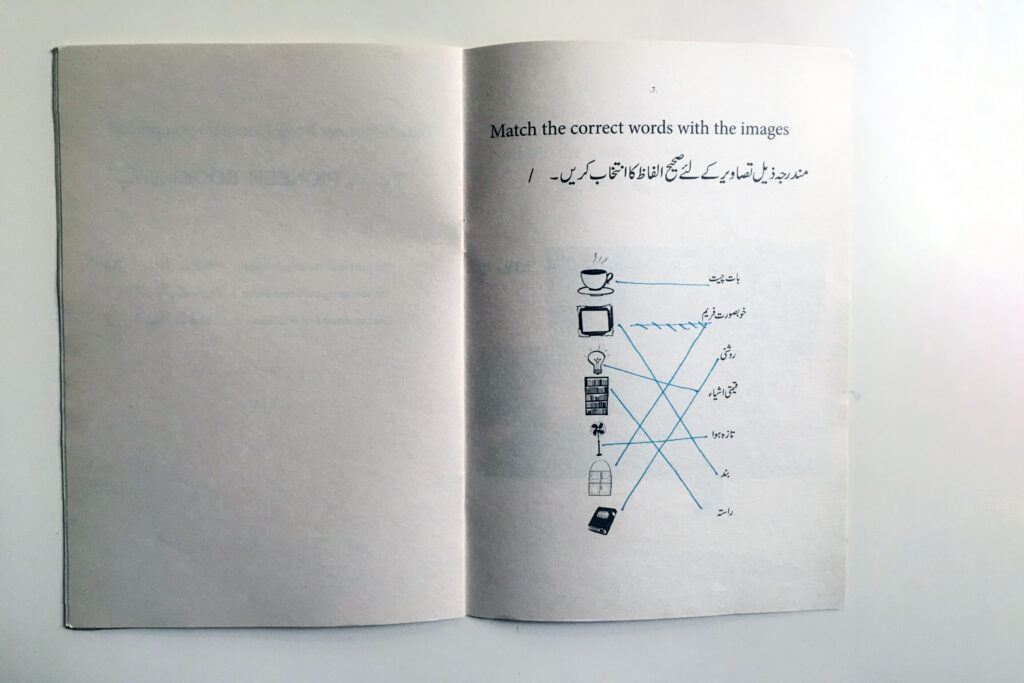 .7.
Match the correct words with the images
مندرجہ ذیل تصاویر کے لئے صحیح الفاظ کا انتخاب کریں۔ /
بات چیت
خوبصورت فریم
روشنی
قیمتی اشیاء
تازہ ہوا
بند
راستہ